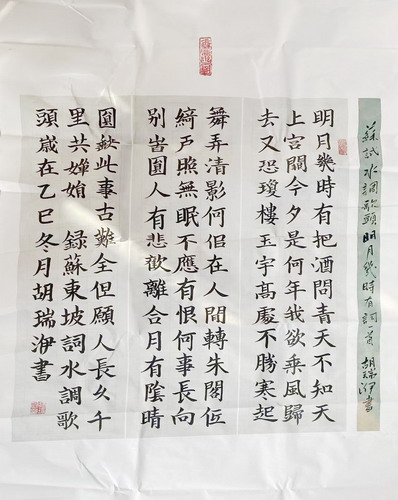 蘇軾水調歌頭明月幾時有詞一首 胡瑞洢書
明月幾時有把酒問青天不知天
上宮闕今夕是何年我欲乘風歸
去又恐瓊樓玉宇髙處不勝寒起
舞弄清影何佀在人間轉朱閣低
綺戶照無眠不應有恨何事長向
别旹圓人有悲歡離合月有陰晴
圓缺此事古難全但願人長久千
里共嬋娟 録蘇東坡詞水調歌
頭歲在乙巳冬月胡瑞洢書